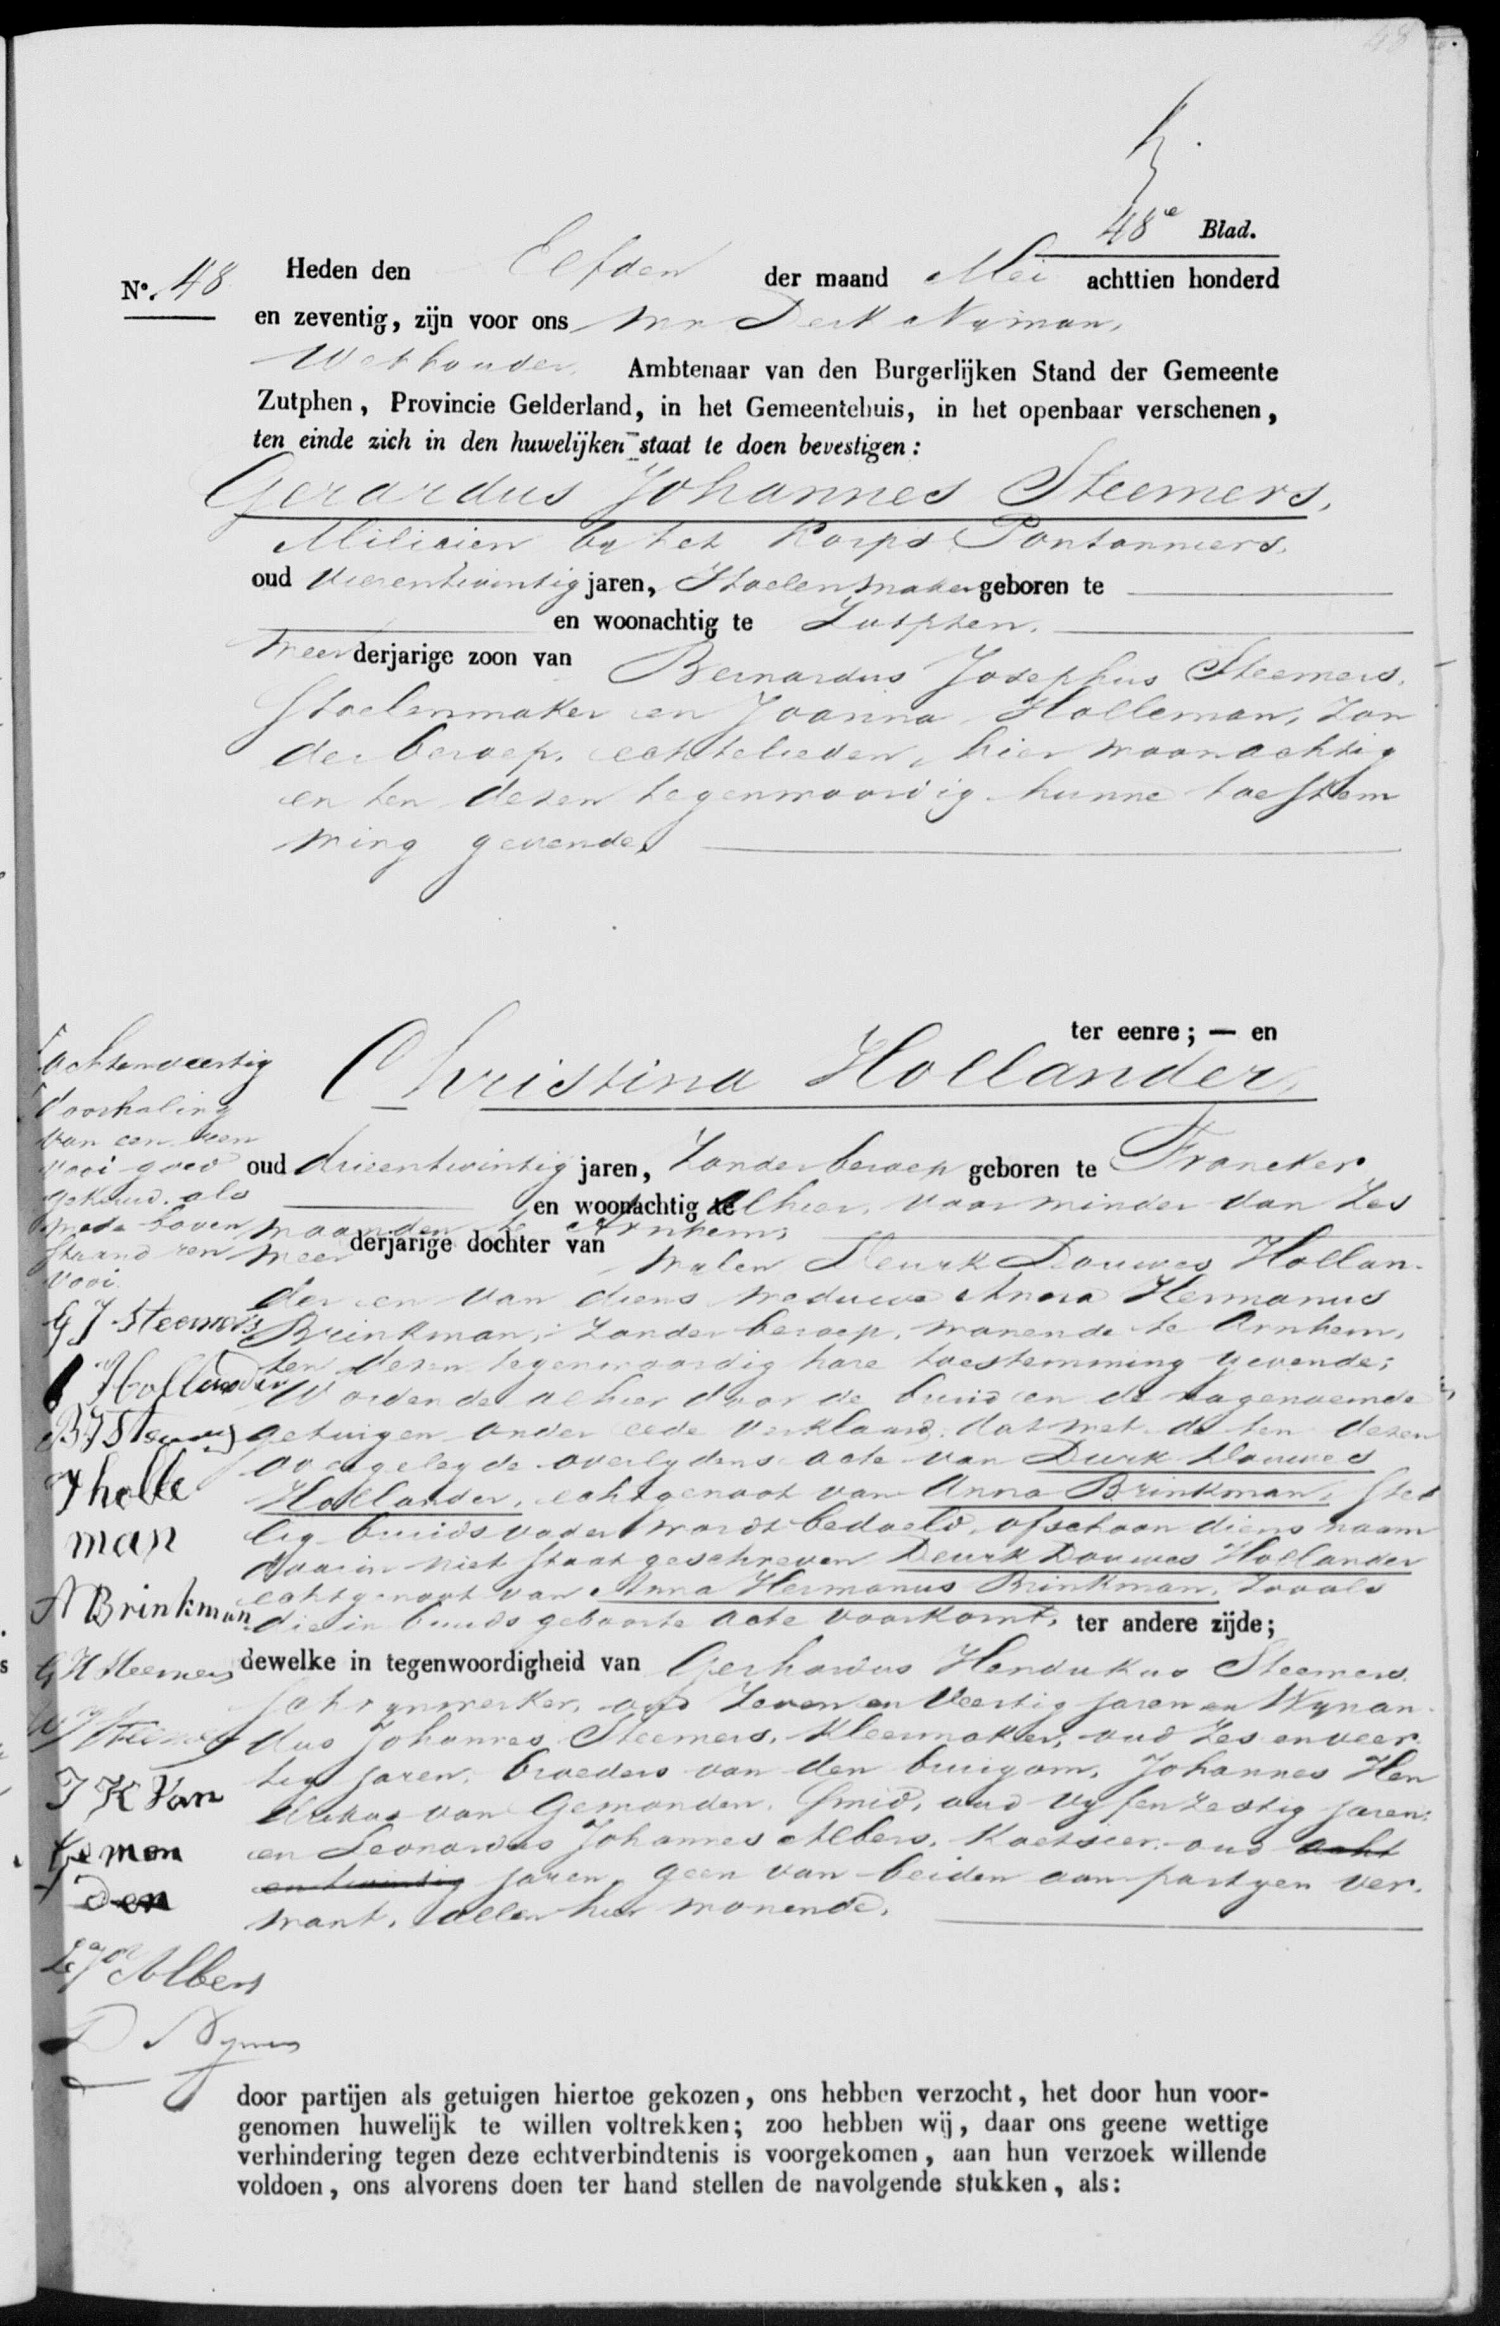 48
48e Blad.
No. 48
Heden den Elfden der maand Mei achttien honderd
en zeventig, zijn voor ons Mr Derk Nyman,
Wethouder, Ambtenaar van den Burgerlijken Stand der Gemeente
Zutphen, Provincie Gelderland, in het Gemeentehuis, in het openbaar verschenen,
ten einde zich in den huwelijken staat te doen bevestigen:
Gerardus Johannes Steemers,
Milicien by het Korps Pontonniers.
oud vierentwintig jaren, Stoelenmaker geboren te
en woonachtig te Zutphen.
meerderjarige zoon van Bernardus Josephus Steemers,
Stoelenmaker en Joanna Holleman, Zon
der beroep, echtelieden, hier woonachtig
en ten dezen tegenwoordig hunne toestem
ming gevende,
ter eenre; — en
Christina Hollander,
oud drieentwintig jaren, Zonder beroep geboren te Franeker
en woonachtig te alhier, voor minder dan zes
maanden te Arnhem,
meerderjarige dochter van wylen Deurk Douwes Hollan-
der en van diens weduwe Anna Hermanus
Brinkman, Zonder beroep, wonende te Arnhem,
ten dezen tegenwoordig hare toestemming gevende;
Wordende alhier door de bruid en de nagenoemde
getuigen onder eede verklaard, dat met de ten dezen
overgelegde overlydens acte van Durk Douwes
Hollander, echtgenoot van Anna Brinkman, Stel
lig bruidsvader wordt bedoeld, ofschoon diens naam
daarin niet staat geschreven Deurk Douwes Hollander
echtgenoot van Anna Hermanus Brinkman, zooals
die in bruids geboorte acte voorkomt, ter andere zijde;
dewelke in tegenwoordigheid van Gerhardus Hendrikus Steemers,
oud Zeven en Veertig jaren en Wynan-
dus Johannes Steemers, Kleermaker, oud Zes en veer
tig jaren, broeders van den bruigom, Johannes Hen
drikus van Gemonden, Smid, oud vyfenzestig jaren;
en Leonardus Johannes Albers, Koetsier, oud acht
en twintig jaren, geen van beiden aan partyen ver-
want, allen hier wonende.
achtenveertig
Doorhaling
van een
goed
gekeurd. als
mede boven
staand
G J Steemers
Hollander
B J Steemers
J holle
man
A Brinkman
G H Steemers
W J Steemers
J H Van
Gemon
den
L J Albers
D Nyman
door partijen als getuigen hiertoe gekozen, ons hebben verzocht, het door hun voor-
genomen huwelijk te willen voltrekken; zoo hebben wij, daar ons geene wettige
verhindering tegen deze echtverbindtenis is voorgekomen, aan hun verzoek willende
voldoen, ons alvorens doen ter hand stellen de navolgende stukken, als: